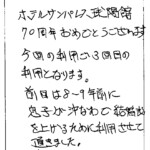 ホテルサンパレス球陽館
70周年おめでとうございます
今回の利用で3回目の
利用となります。
前回は8〜9年前に
息子が沖なわで結婚式
を上げるために利用させて
頂きました。